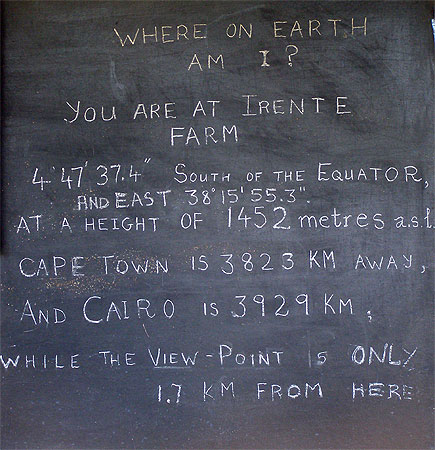 WHERE ON EARTH
AM I?
YOU ARE AT IRENTE
FARM
4°47'37.4" SOUTH OF THE EQUATOR,
AND EAST 38°15'55.3".
AT A HEIGHT OF 1452 metres a.s.l.
CAPE TOWN IS 3823 KM AWAY,
AND CAIRO IS 3929 KM,
WHILE THE VIEW-POINT IS ONLY
1.7 KM FROM HERE